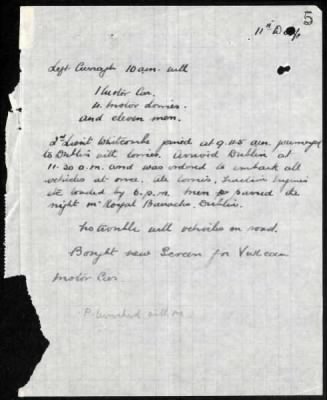 5
11th Day
Left Curragh 10 am. with
1 Motor Car.
4 Motor Lorries.
and eleven men.
2nd Lieut Whitcombe joined at 9.45 am. journeyed
to Dublin with lorries. Arrived Dublin at
11.30 a.m. and was ordered to embark all
vehicles at once. All Lorries, Traction Engines
etc loaded by 6.p.m. Men passed the
night in Royal Barracks, Dublin.
No trouble with vehicles on road.
Bought new Screen for Vulcan
Motor Car.